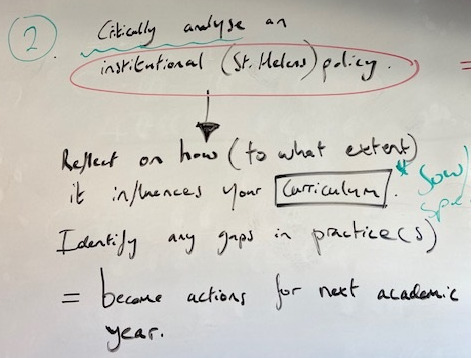 2
Critically analyse an
institutional (St. Helens) policy.
Reflect on how (to what extent)
it influences your curriculum.
Identify any gaps in practice(s)
= become actions for next academic
year.